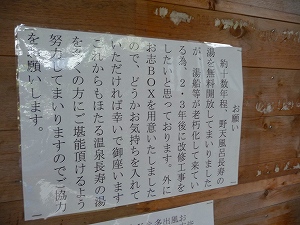 お願い
約十数年程、野天風呂長寿の
湯を無料開放してまいりました
が、湯船等が老朽化して来てい
る為、1・2・3年後に改修工事を
したいと思っております。外に
お志BOXを用意いたしました
ので、どうかお気持ちを入れて
いただければ幸いで御座います
これからもほたる温泉長寿の湯
を多くの方にご堪能頂けるよう
努力してまいりますのでご協力
をお願いします。